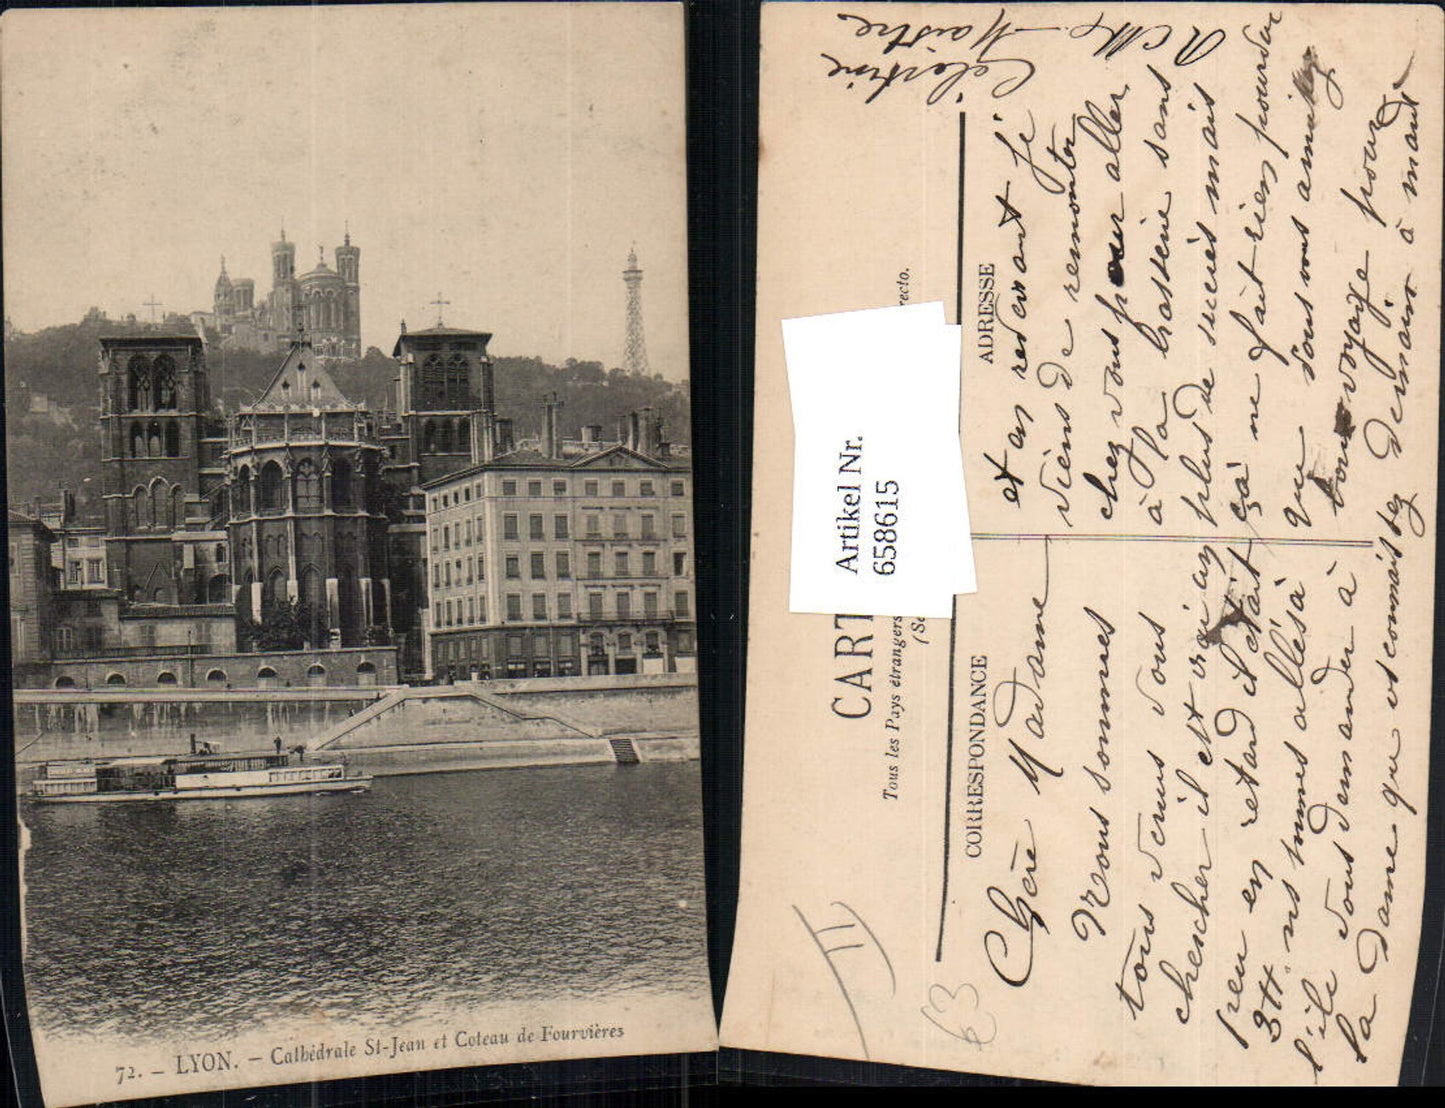 72. – LYON. – Cathédrale St-Jean et Coteau de Fourvières
CART
Tous les Pays étrangers
recto.
(Se
Artikel Nr.
658615
CORRESPONDANCE
ADRESSE
II
63
Chère Madame
Nous sommes
tous venus vous
chercher il est vrai un
peu en retard il était
3H. ns sommes allés à
l'île vous demander à
la dame que vs connaissez
et en revenant je
viens de remonter
chez vous pour aller
à la brasserie sans
plus de succès mais
çà ne fait rien pourvu
que vous vous amusiez
bon voyage pour
demain à mardi
Célestine
Maistre